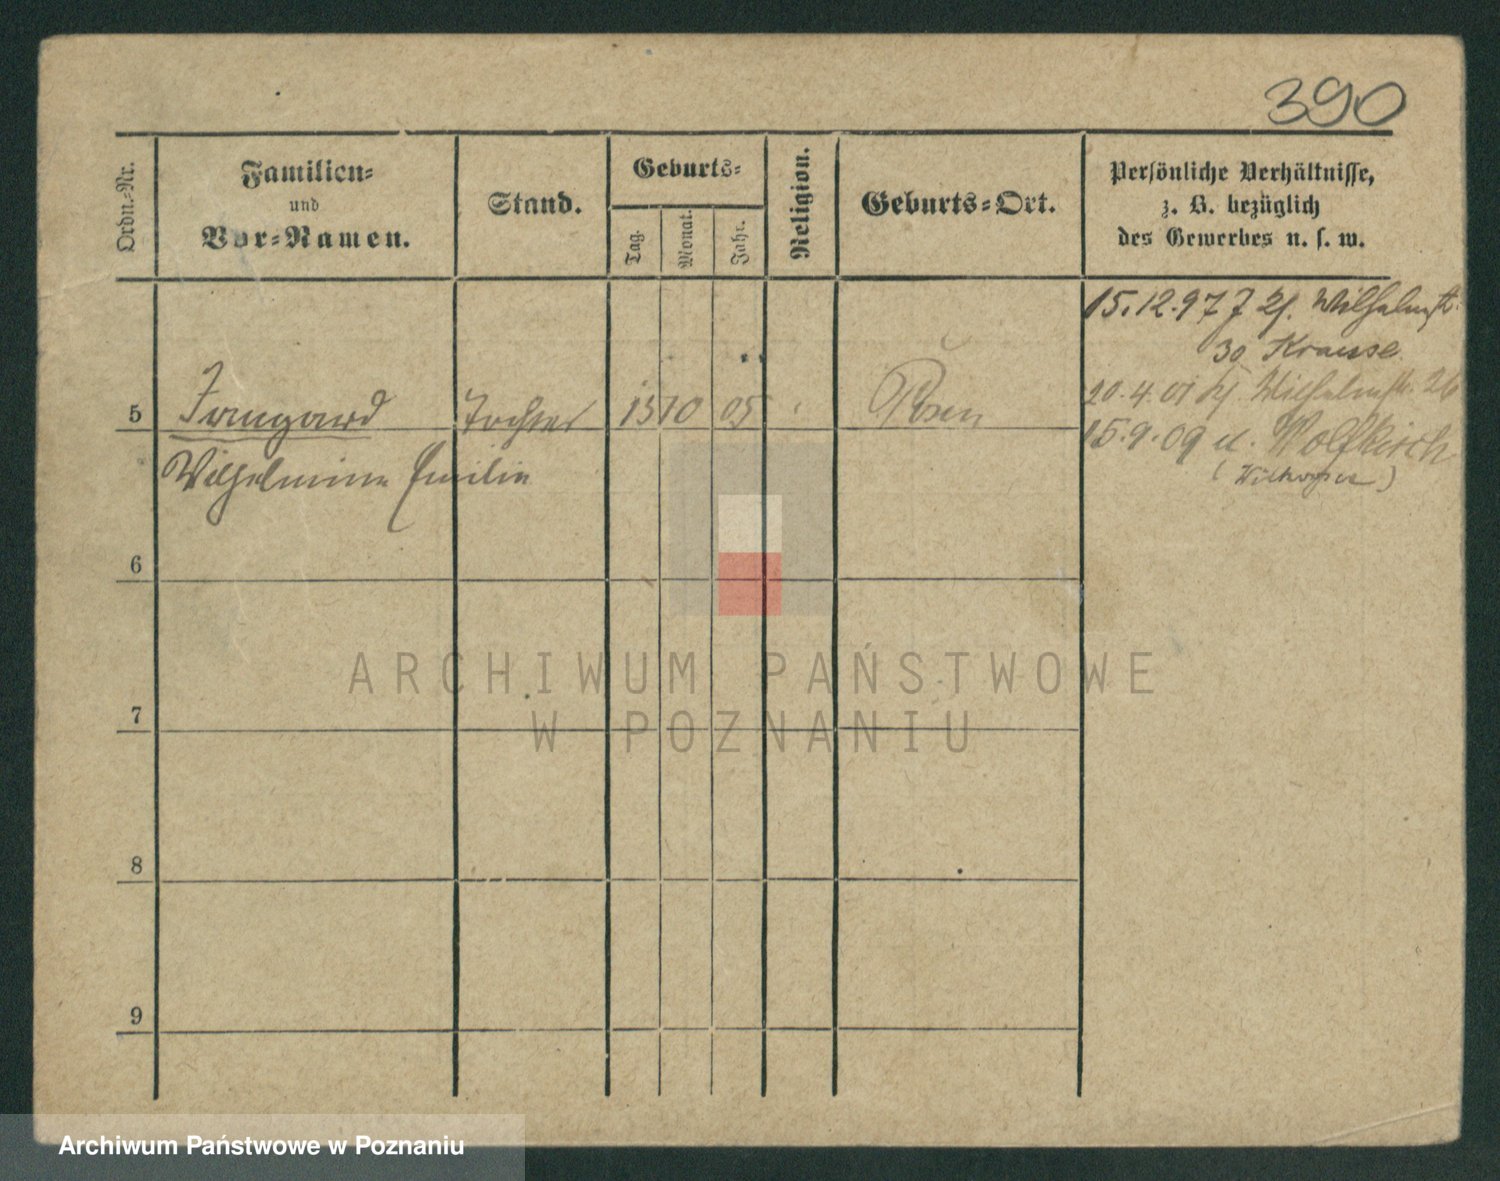 390
Ordn.-Nr.
Familien-
und
Vor-Namen.
Stand.
Geburts-
Tag.
Monat.
Jahr.
Religion.
Geburts-Ort.
Persönliche Verhältnisse,
z. B. bezüglich
des Gewerbes u. s. w.
15.12.97 Wilhelmstr.
30 Krause
5 Irmgard Tochter 13 10 05 Posen
20.4.01 Wilhelmstr. 26
15.9.09 n. Wolfkirch
Wilhelmine Emilie
6
7
8
9
ARCHIWUM PAŃSTWOWE
W POZNANIU
Archiwum Państwowe w Poznaniu